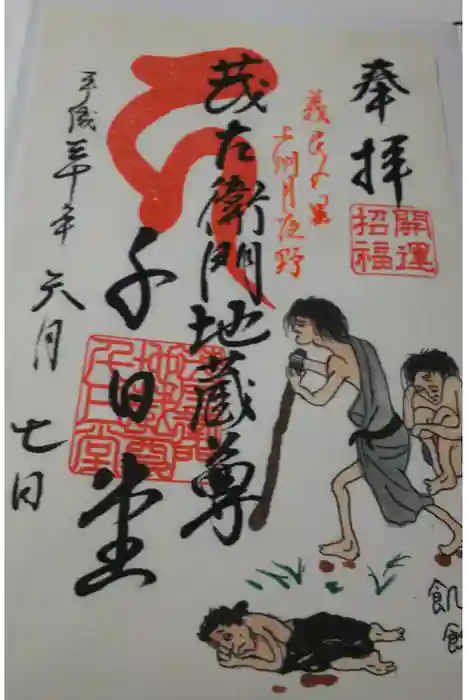 奉拝
開運
招福
義民の里
上州月夜野
茂左衛門地蔵尊
千日堂
平成三十年六月七日
飢餓